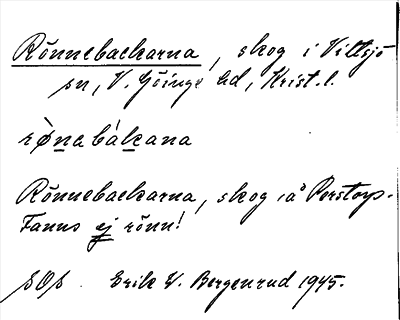 Rönnebackarna, skog i Vittsjö
sn, V. Göinge hd, Krist. l.
rø̀nabákana
Rönnebackarna, skog på Perstorp.
Fanns ej rönn!
SOS Erik V. Bergenrud 1945.